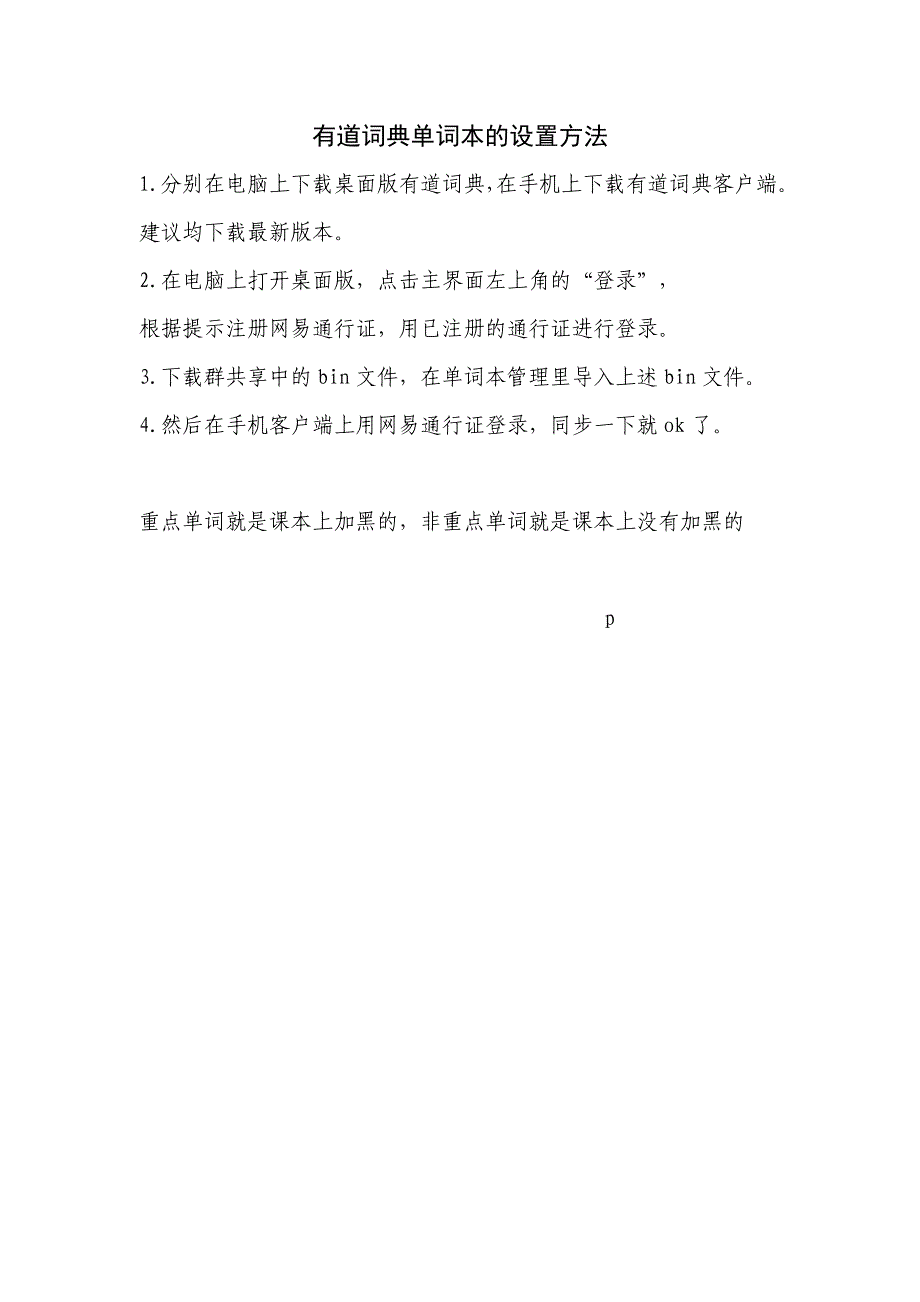 有道词典单词本的设置方法
1.分别在电脑上下载桌面版有道词典,在手机上下载有道词典客户端。
建议均下载最新版本。
2.在电脑上打开桌面版，点击主界面左上角的“登录”，
根据提示注册网易通行证，用已注册的通行证进行登录。
3.下载群共享中的bin文件，在单词本管理里导入上述bin文件。
4.然后在手机客户端上用网易通行证登录，同步一下就ok了。
重点单词就是课本上加黑的，非重点单词就是课本上没有加黑的
p